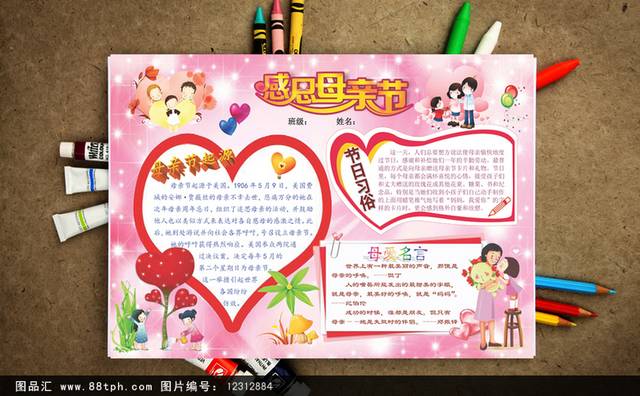 感恩母亲节
班级：
姓名：
母亲节起源
母亲节起源于美国。1906年5月9日，美国费
城的安娜·贾薇丝的母亲不幸去世，悲痛万分的她在
次年母亲周年忌日，组织了追思母亲的活动，并鼓励
他人也以类似方式来表达对各自慈母的感激之情。此
后，她到处游说并向社会各界呼吁，号召设立母亲节。
她的呼吁获得热烈响应。美国参众两院通
过决议案，决定每年5月的
第二个星期日为母亲节，
这一举措引起世界
各国纷纷
仿效。
节日习俗
这一天，人们总要想方设法使母亲愉快地度
过节日，感谢和补偿她们一年的辛勤劳动。最普
通的方式是向母亲赠送母亲节卡片和礼物。节日
里，每个母亲都会满怀喜悦的心情，接受孩子们
和丈夫赠送的玫瑰花或其他花束、糖果、书和纪
念品，特别是当他们收到小孩子们自己动手制作
的上面用蜡笔稚气地写着“妈妈，我爱你”的字
样的卡片时，更会感到格外自豪和欣慰。
母爱名言
世界上有一种最美丽的声音，那便是
母亲的呼唤。——但丁
人的嘴唇所能发出的最甜美的字眼，
就是母亲，最美好的呼唤，就是“妈妈”。
——纪伯伦
成功的时候，谁都是朋友。但只有
母亲——她是失败时的伴侣。——郑振铎
图品汇 www.88tph.com 图片编号：12312884